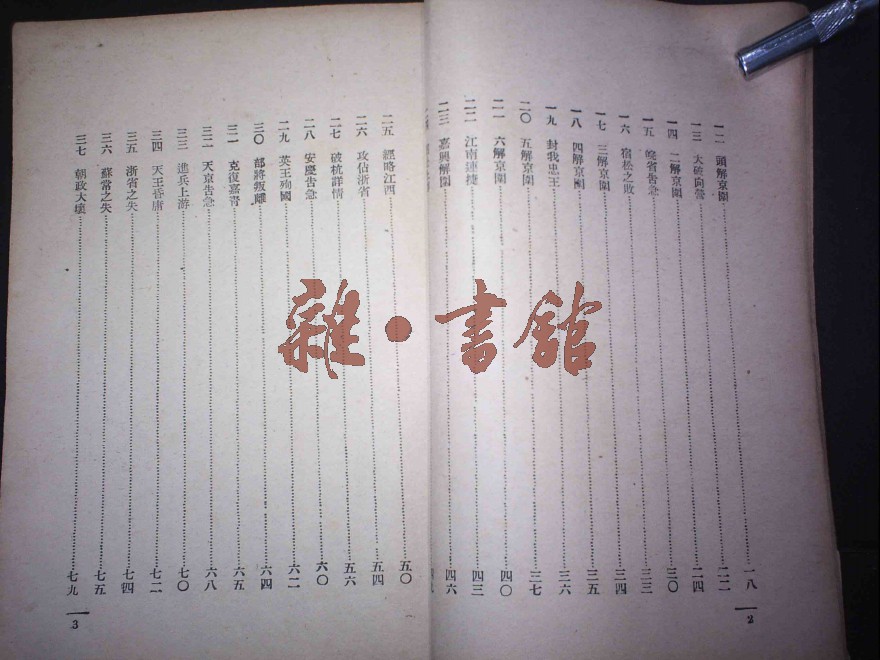 一二 頭解京圍……一八
一三 大破向營……二二
一四 二解京圍……二四
一五 皖省告急……三〇
一六 宿松之敗……三三
一七 三解京圍……三四
一八 四解京圍……三五
一九 封我忠王……三六
二〇 五解京圍……三七
二一 六解京圍……四〇
二二 江南連捷……四三
二三 嘉興解圍……四六
2
二五 經略江西……五〇
二六 攻佔浙省……五四
二七 破杭詳情……五六
二八 安慶告急……六〇
二九 英王殉國……六二
三〇 部將叛離……六四
三一 克復嘉青……六五
三二 天京告急……六八
三三 進兵上游……七〇
三四 天王昏庸……七二
三五 浙省之失……七四
三六 蘇常之失……七五
三七 朝政大壞……七九
3
雜·書館